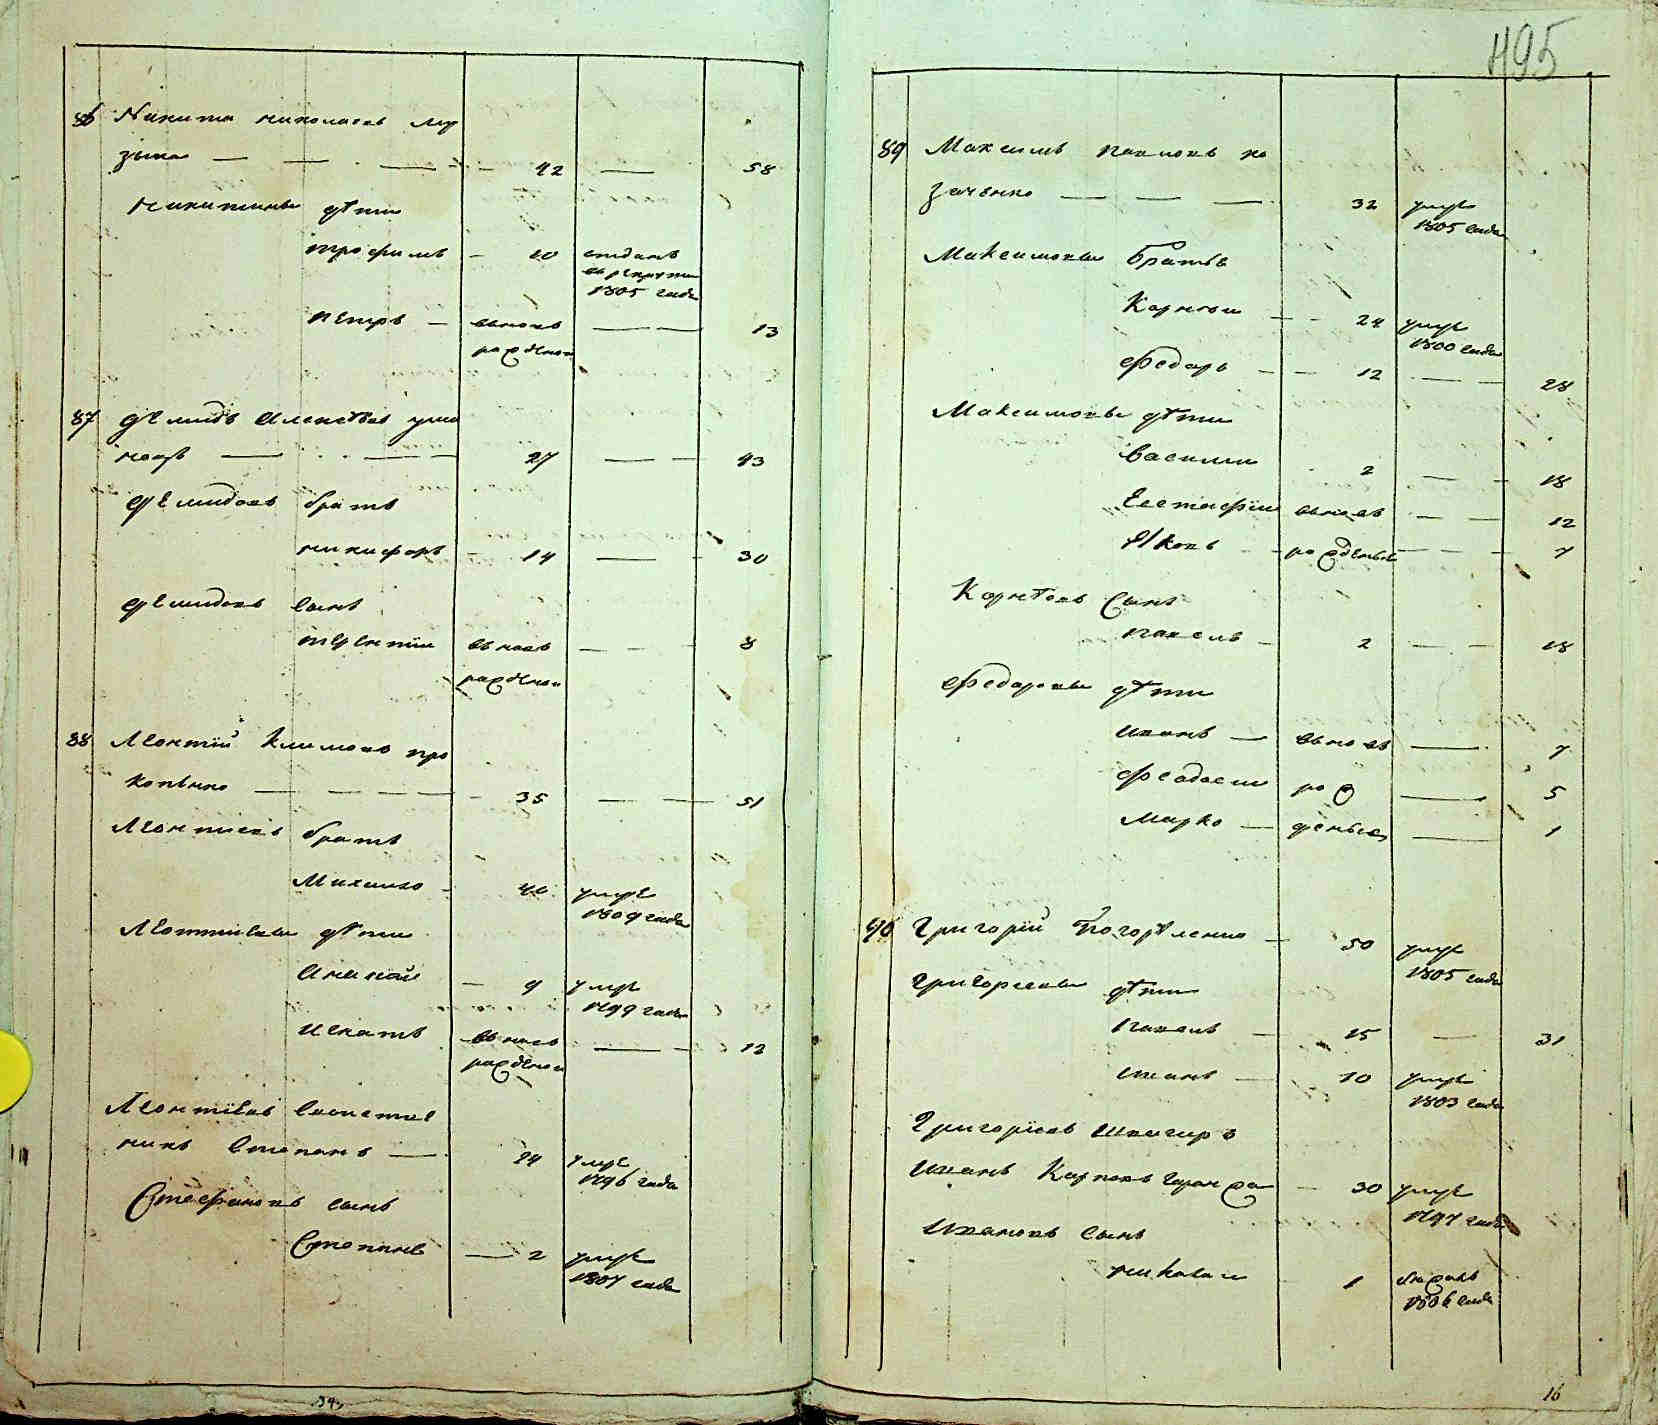 495
86 Никита николаевъ му
зыка — — — 42 — 58
Никитины дѣти
трофимъ — 10 отданъ
въ рекруты
1805 года
петръ — вновь — 13
рожденъ
87 демидъ Алексѣевъ
27 — 43
демидовъ братъ
никифоръ — 14 — 30
демидовъ сынъ
терентии вновь — 8
рожденъ
88 Леонтій Климовъ про
копенко — 35 — 51
Леонтиевъ братъ
Михаило — 40 умре
1809 года
Леонтиевы дѣти
— 9 умре
1799 года
игнатъ вновь — 12
рожденъ
Леонтіевъ
никъ Степанъ — 24 умре
1796 года
Стефановъ сынъ
Степанъ — 2 умре
1807 года
34
89 Максимъ павловъ ко
заченко — — — 32 умре
1805 года
Максимовы братья
Карпъ — 24 умре
1800 года
федоръ — 12 — 28
Максимовы дѣти
василии 2 — 18
Евстафіи вновь — 12
Яковъ — рожденые — 7
Карповъ сынъ
павелъ — 2 — 18
федоровы дѣти
иванъ — вновь — 7
феодосии рож — 5
Марко — деные — 1
90 Григорій Погорѣленко — 50 умре
1805 года
григориевы дѣти
павелъ — 15 — 31
иванъ — 10 умре
1803 года
Григориевъ
иванъ Карповъ — 30 умре
1797 года
ивановъ сынъ
николаи 1
1806 года
16